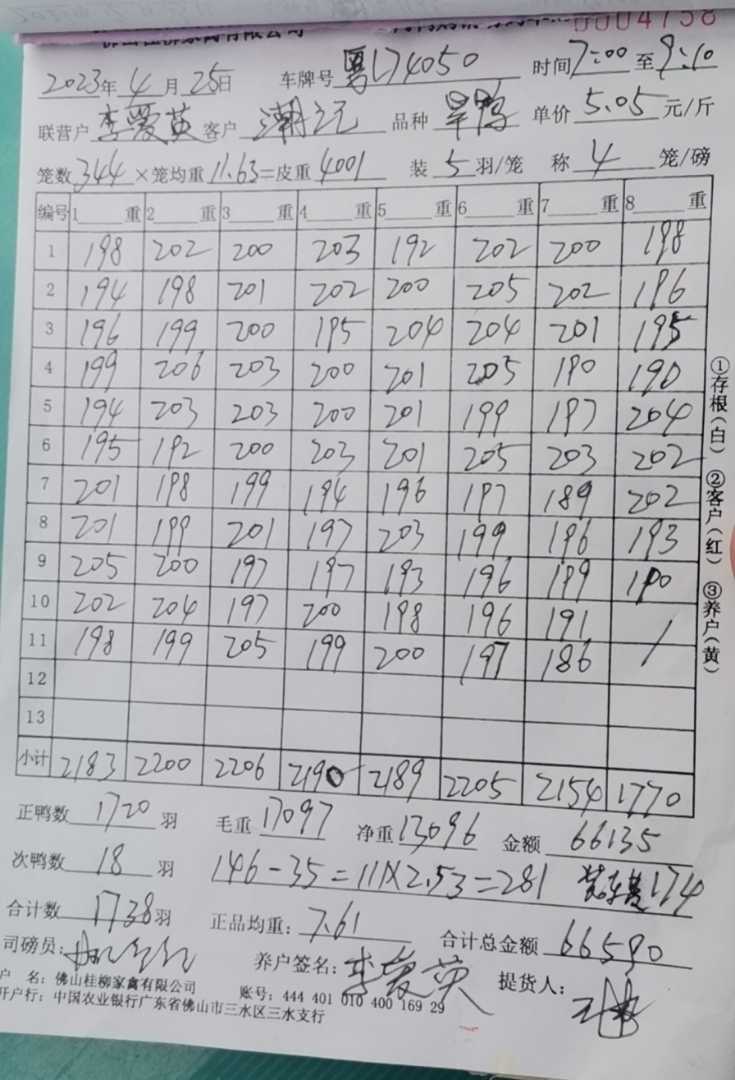 佛山桂柳家禽有限公司 0004758
2023年4月25日 车牌号 粤L74050 时间7:00至9:10
联营户 李爱英 客户 潮记 品种 旱鸭 单价5.05元/斤
笼数344×笼均重11.63=皮重4001 装5羽/笼 称4笼/磅
编号 1重 2重 3重 4重 5重 6重 7重 8重
1 198 202 200 203 192 202 200 198
2 194 198 201 202 200 205 202 196
3 196 199 200 195 204 204 201 195
4 199 206 203 200 201 205 190 190
5 194 203 203 200 201 199 197 204
6 195 192 200 203 201 205 203 202
7 201 198 199 194 196 197 189 202
8 201 199 201 197 203 199 196 193
9 205 200 197 197 193 196 199 190
10 202 204 197 200 198 196 191 /
11 198 199 205 199 200 197 186 /
12
13
小计 2183 2200 2206 2190 2189 2205 2154 1770
正鸭数1720羽 毛重17097 净重13096 金额66135
次鸭数18羽 146-35=111×2.53=281 174
合计数1738羽 正品均重:7.61 合计总金额66590
司磅员: 养户签名:李爱英 提货人:
户 名:佛山桂柳家禽有限公司 账号:444 401 010 400 169 29
开户行:中国农业银行广东省佛山市三水区三水支行
①存根(白) ②客户(红) ③养户(黄)